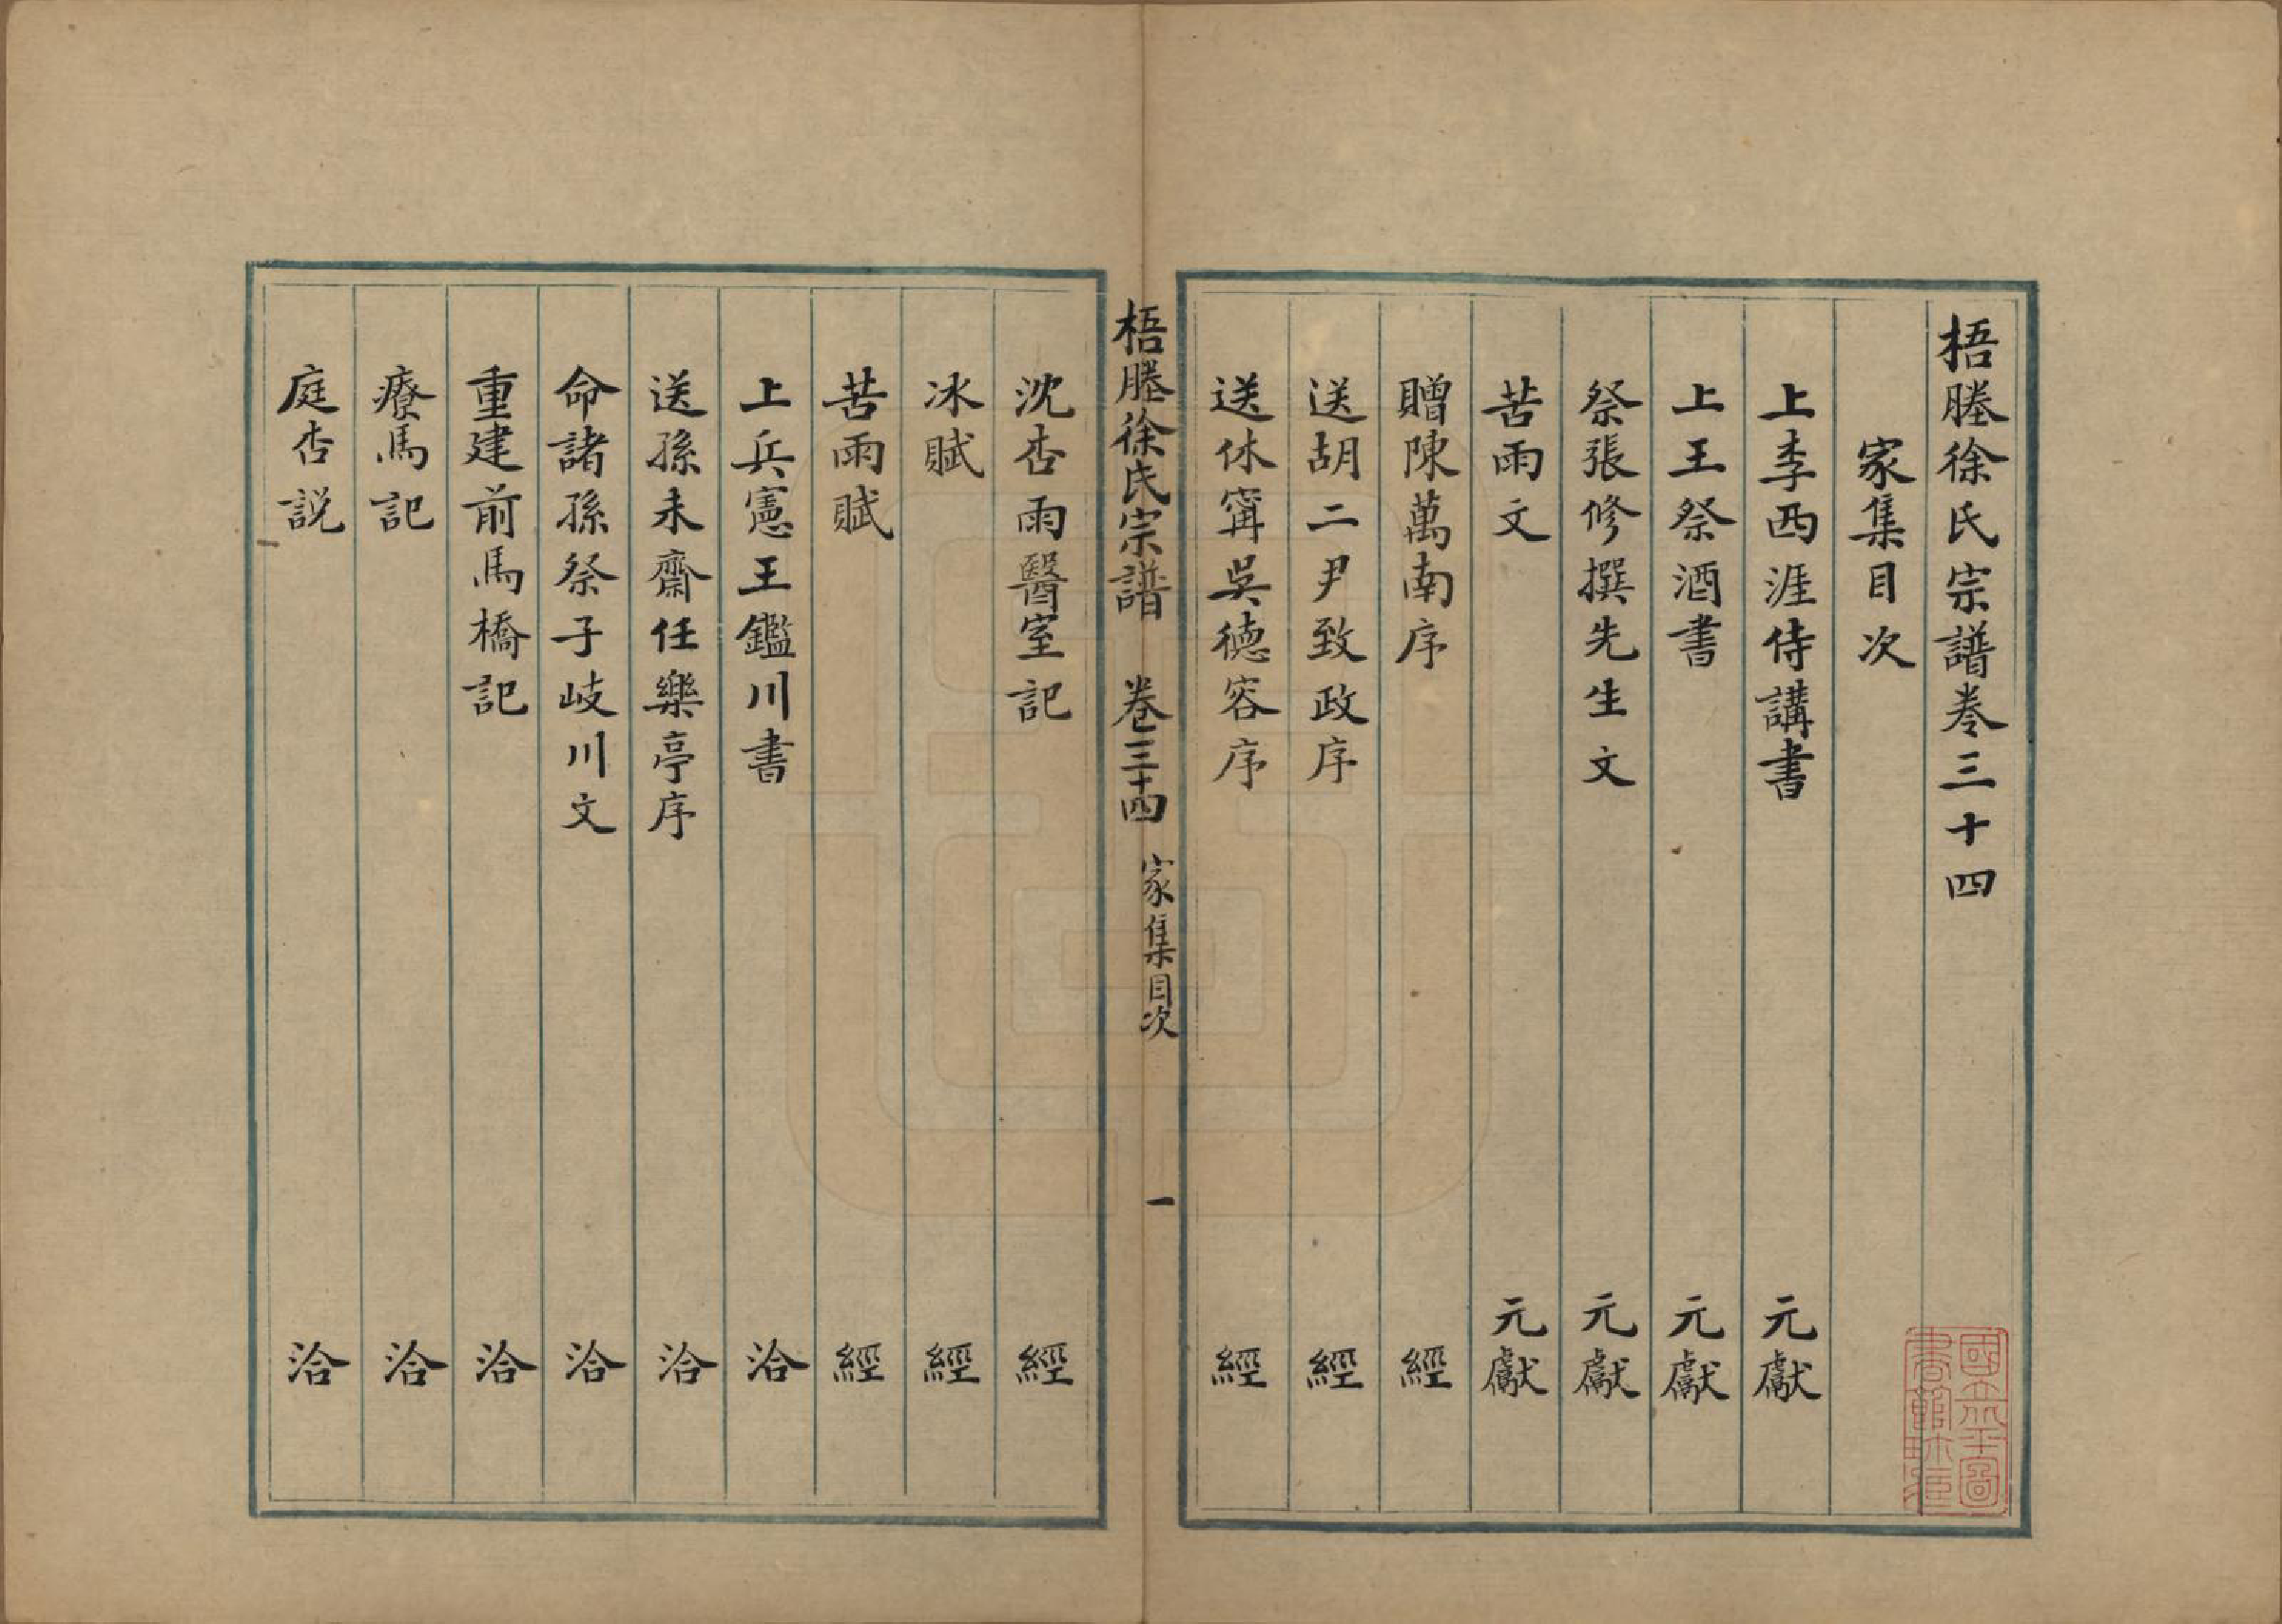 梧塍徐氏宗譜卷三十四
家集目次
上李西涯侍講書 元獻
上王祭酒書 元獻
祭張修撰先生文 元獻
苦雨文 元獻
贈陳萬南序 經
送胡二尹致政序 經
送休寗吳德容序 經
梧塍徐氏宗譜 卷三十四 家集目次 一
沈杏雨醫室記 經
冰賦 經
苦雨賦 經
上兵憲王鑑川書 洽
送孫未齋任樂亭序 洽
命諸孫祭子岐川文 洽
重建前馬橋記 洽
療馬記 洽
庭杏説 洽
國立北平圖
書館珍藏